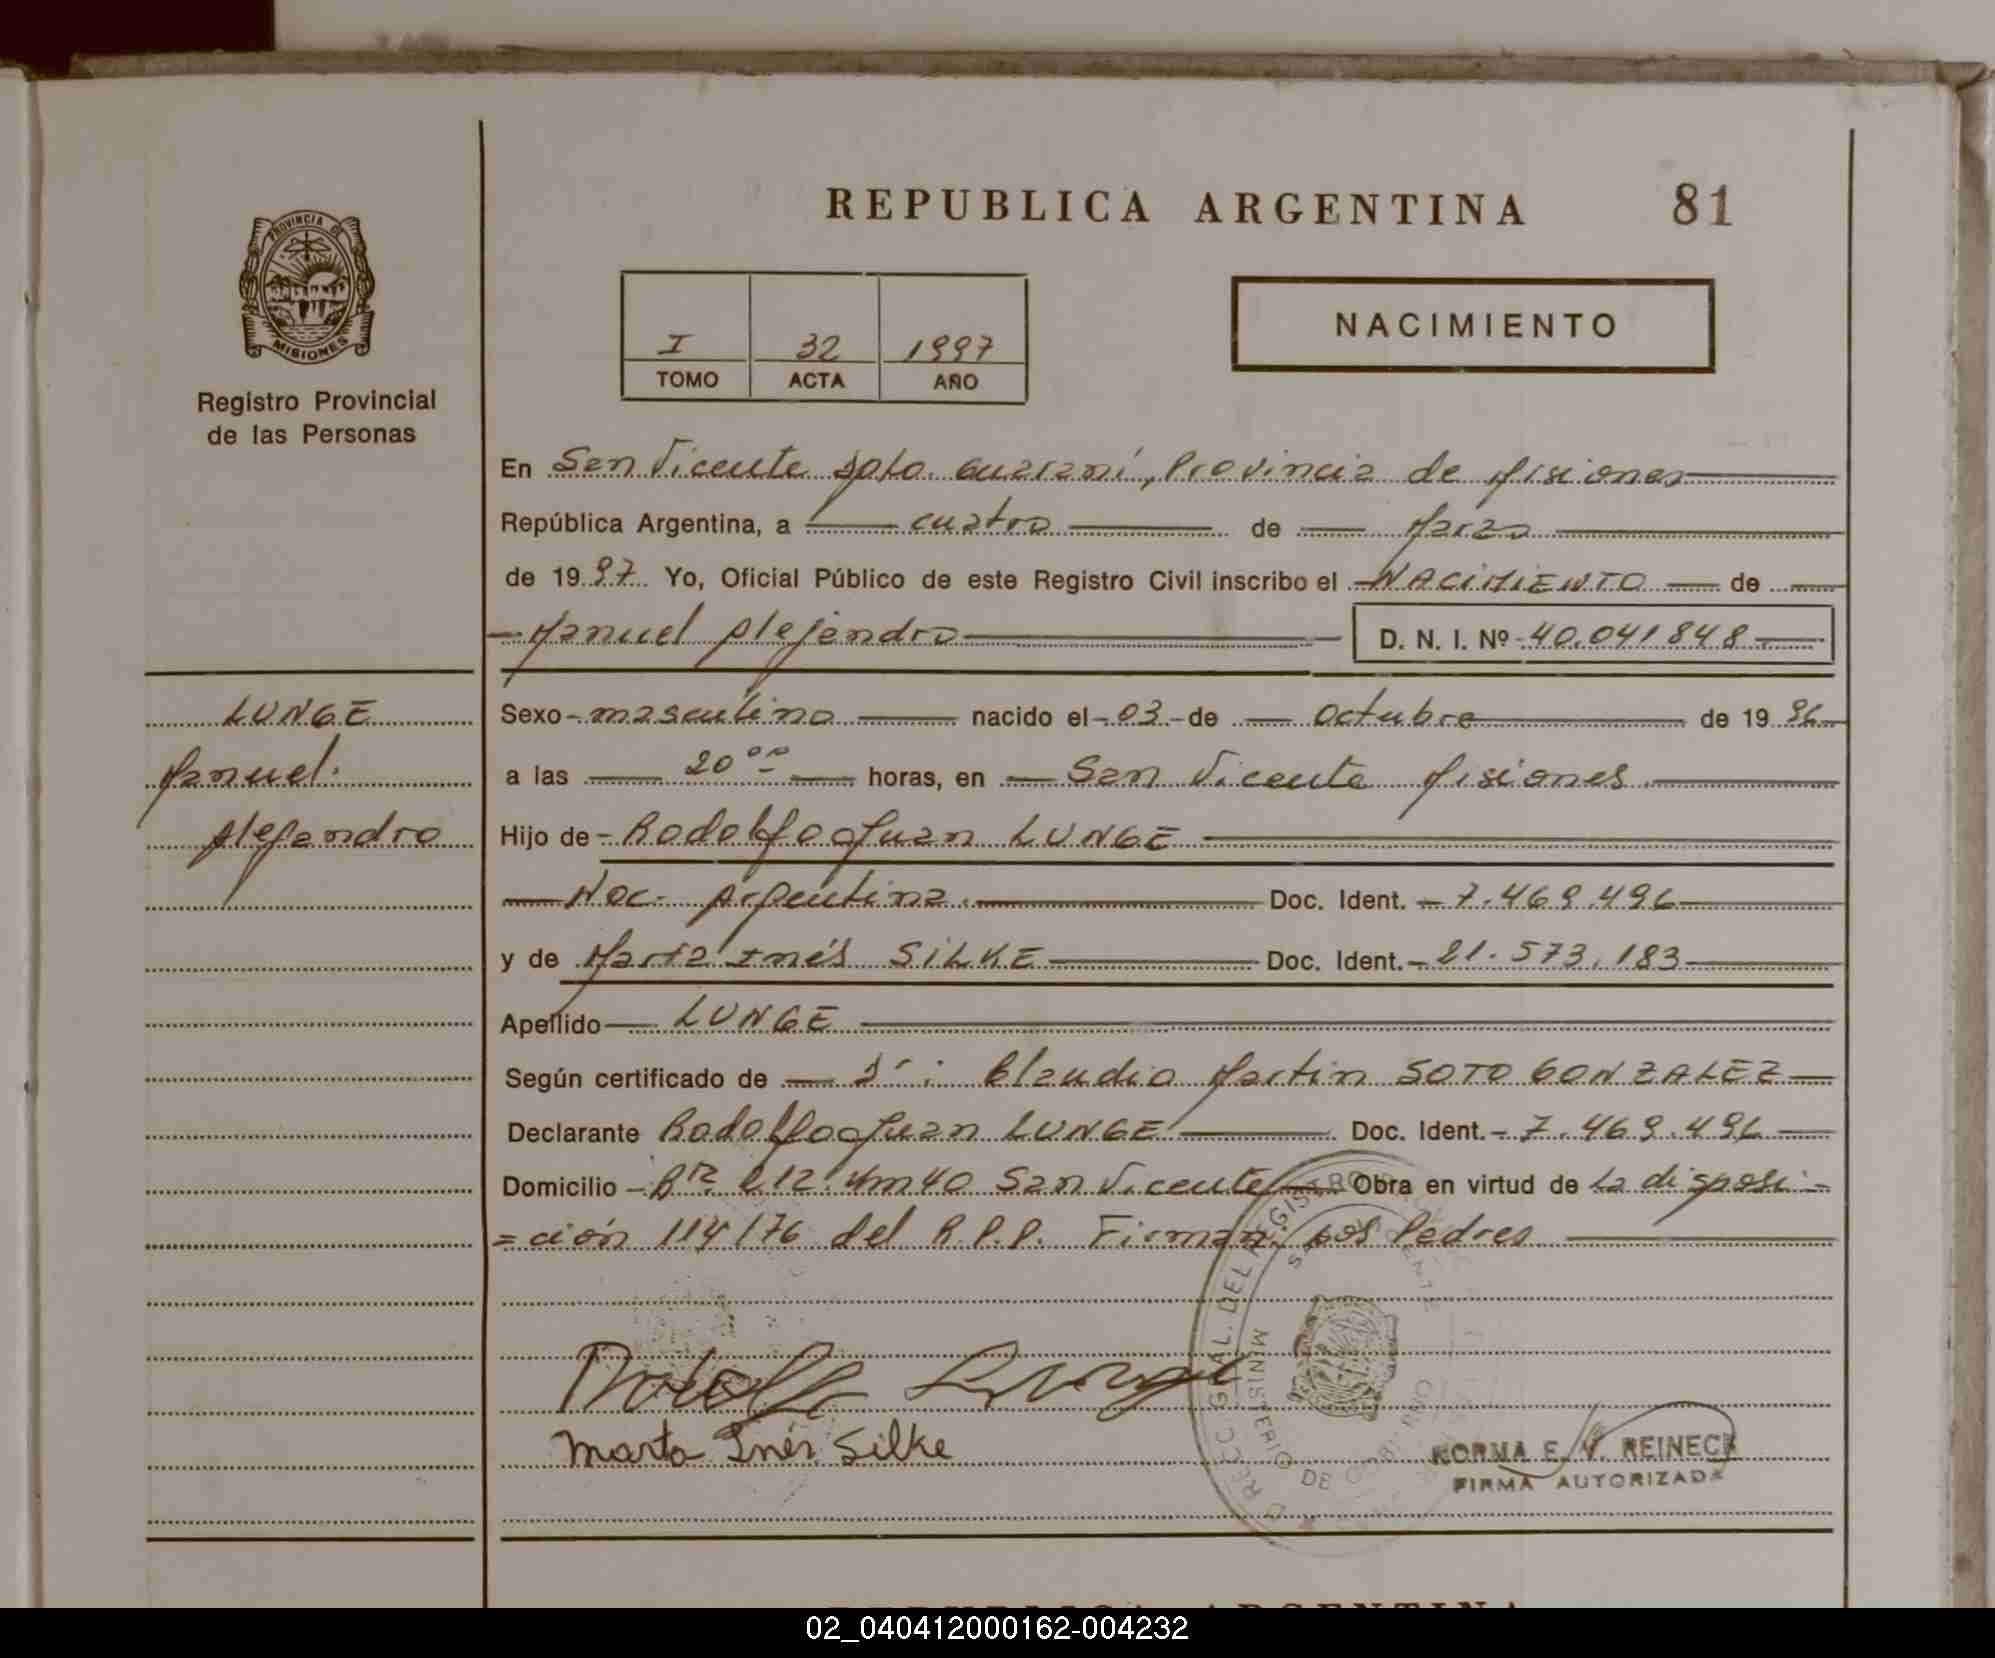 REPUBLICA ARGENTINA 81
PROVINCIA DE
MISIONES
Registro Provincial
de las Personas
I 32 1997
TOMO ACTA AÑO
NACIMIENTO
En San Vicente Dpto. Guaraní, Provincia de Misiones
República Argentina, a cuatro de Marzo
de 1997 Yo, Oficial Público de este Registro Civil inscribo el NACIMIENTO de
Manuel Alejandro D. N. I. Nº 40.041.848
LUNGE
Manuel
Alejandro
Sexo masculino nacido el 03 de Octubre de 1996
a las 20 00 horas, en San Vicente Misiones
Hijo de Rodolfo Juan LUNGE
Nac. Argentina Doc. Ident. 7.469.496
y de Marta Inés SILKE Doc. Ident. 21.573.183
Apellido LUNGE
Según certificado de Dr: Claudio Martin SOTO GONZALEZ
Declarante Rodolfo Juan LUNGE Doc. Ident. 7.469.496
Domicilio 212 Km 40 San Vicente Obra en virtud de La disposi-
=ción 114/76 del R.P.P. Firman: los Padres
Rodolfo Lunge
Marta Inés Silke
GRAL. DEL REGISTRO
MINISTERIO DE
NORMA E. V. REINECK
FIRMA AUTORIZADA
REPUBLICA ARGENTINA
02_040412000162-004232